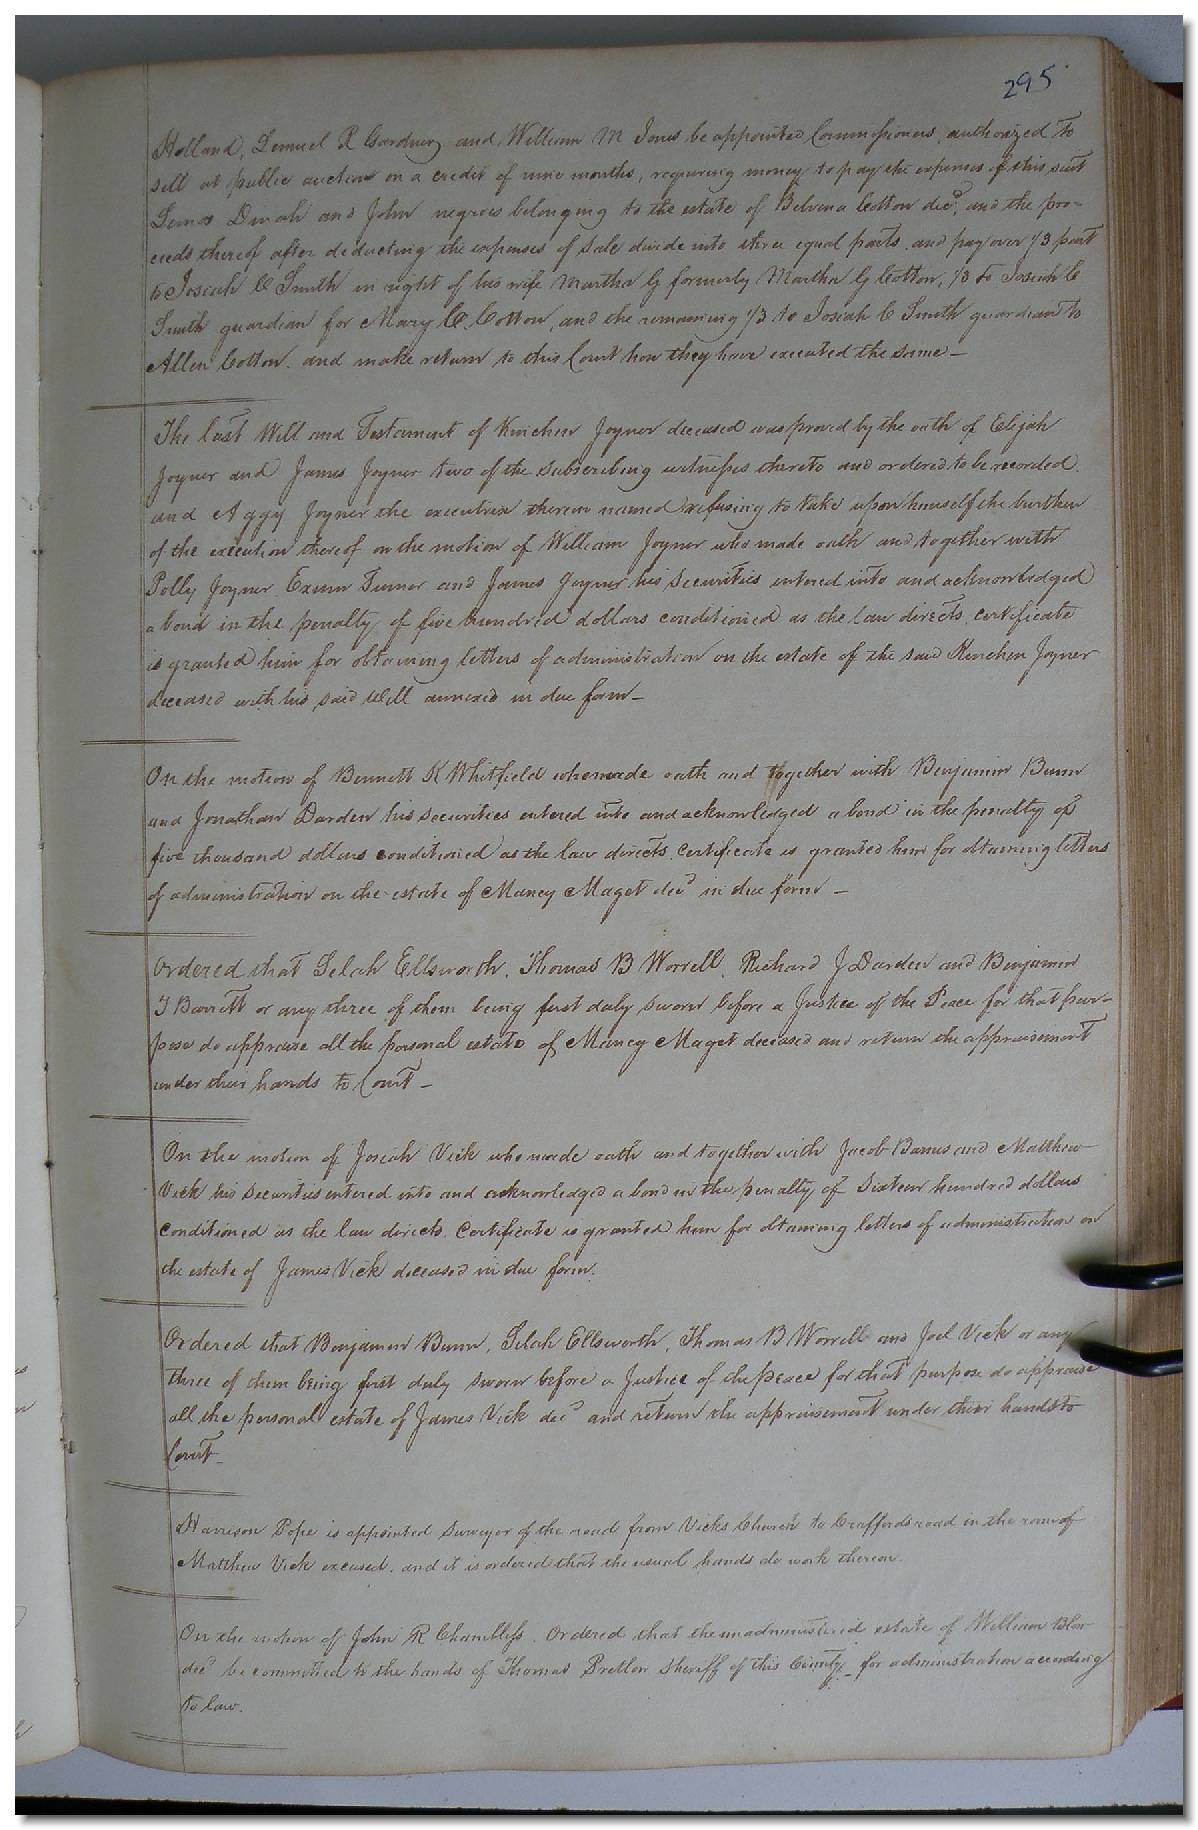 295
Holland, Lemuel R Gardner, and William M Jones be appointed Commissioners, authorized to
sell at public auction on a credit of nine months, requiring money to pay the expenses of this suit
Dinah and John negroes belonging to the estate of Belvena Cotton decd, and the pro-
ceeds thereof after deducting the expenses of sale divide into three equal parts, and pay over 1/3 part
to Josiah C Smith in right of his wife Martha G formerly Martha G Cotton, 1/3 to Josiah C
Smith guardian for Mary C. Cotton, and the remaining 1/3 to Josiah C Smith guardian to
Allen Cotton. and make return to this Court how they have executed the same—
The last Will and Testament of Kinchen Joyner deceased was proved by the oath of Elijah
Joyner and James Joyner two of the subscribing witnesses thereto and ordered to be recorded.
and Aggy Joyner the executrix therein named refusing to take upon himself the burthen
of the execution thereof on the motion of William Joyner who made oath and together with
Polly Joyner Exum Turner and James Joyner his securities entered into and acknowledged
a bond in the penalty of five hundred dollars conditioned as the law directs, certificate
is granted him for obtaining letters of administration on the estate of the said Kinchen Joyner
deceased with his said Will annexed in due form—
On the motion of Bennett K Whitfield who made oath and together with Benjamin Bunn
and Jonathan Darden his securities entered into and acknowledged a bond in the penalty of
five thousand dollars conditioned as the law directs, certificate is granted him for obtaining letters
of administration on the estate of Mancy Maget decd in due form—
Ordered that Selah Ellsworth, Thomas B Worrell, Richard J Darden and Benjamin
T Barrett or any three of them being first duly sworn before a Justice of the Peace for that pur-
pose do appraise all the personal estate of Mancy Maget deceased and return the appraisement
under their hands to Court—
On the motion of Josiah Vick who made oath and together with Jacob Barnes and Matthew
Vick his securities entered into and acknowledged a bond in the penalty of Sixteen hundred dollars
conditioned as the law directs. Certificate is granted him for obtaining letters of administration on
the estate of James Vick deceased in due form.
Ordered that Benjamin Bunn, Selah Ellsworth, Thomas B Worrell and Joel Vick or any
three of them being first duly sworn before a Justice of the peace for that purpose do appraise
all the personal estate of James Vick decd and return the appraisement under their hands to
Court—
Harrison Pope is appointed Surveyor of the road from Vicks Church to Craffords road in the room of
Matthew Vick excused, and it is ordered that the usual hands do work thereon.
On the motion of John R Chambliss. Ordered that the unadministered estate of William Blow
decd be committed to the hands of Thomas Pretlow Sheriff of this County—for administration according
to law.